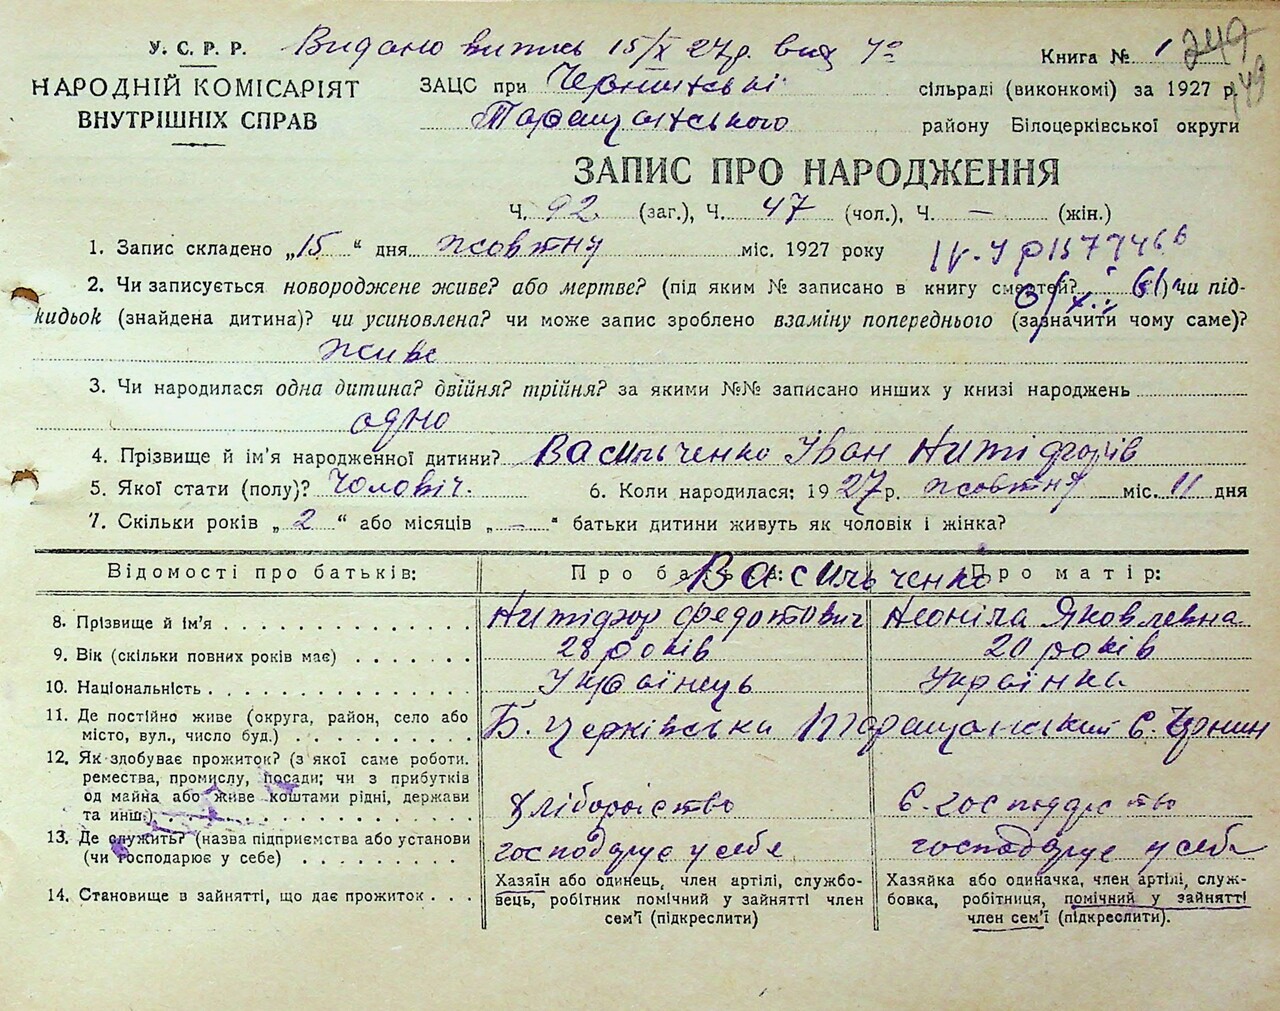 У. С. Р. Р. Видано витяг 15/X 27р. вих Книга № 1 249
НАРОДНІЙ КОМІСАРІЯТ ЗАЦС при сільраді (виконкомі) за 1927 р. 149
ВНУТРІШНІХ СПРАВ Таращанського району Білоцерківської округи
ЗАПИС ПРО НАРОДЖЕННЯ
Ч. 92 (заг.), Ч. 47 (чол.), Ч. — (жін.)
1. Запис складено „15“ дня жовтня міс. 1927 року
2. Чи записується новороджене живе? або мертве? (під яким № записано в книгу смертей? ) чи під-
кидьок (знайдена дитина)? чи усиновлена? чи може запис зроблено взаміну попереднього (зазначити чому саме)?
живе
3. Чи народилася одна дитина? двійня? трійня? за якими №№ записано инших у книзі народжень
одно
4. Прізвище й ім'я народженної дитини? Васильченко Іван
5. Якої стати (полу)? Чоловіч. 6. Коли народилася: 1927 р. жовтня міс. 11 дня
7. Скільки років „2“ або місяців „—“ батьки дитини живуть як чоловік і жінка?
Відомості про батьків: Про батька: Про матір:
Васильченко
8. Прізвище й ім'я Нитіфор Федотович Неоніла Яковлевна
9. Вік (скільки повних років має) 28 років 20 років
10. Національність Українець Українка
11. Де постійно живе (округа, район, село або
місто, вул., число буд.) Б. Церківська Таращанский с. Чернин
12. Як здобуває прожиток? (з якої саме роботи.
ремества, промислу, посади; чи з прибутків
од майна або живе коштами рідні, держави
та инш.) Хліборобство с. господарство
13. Де служить? (назва підприємства або установи
(чи господарює у себе) господарує у себе господарує у себе
14. Становище в зайнятті, що дає прожиток
Хазяїн або одинець, член артілі, службо-
вець, робітник помічний у зайнятті член
сем'ї (підкреслити)
Хазяйка або одиначка, член артілі, служ-
бовка, робітниця, помічний у зайнятті
член сем'ї (підкреслити).